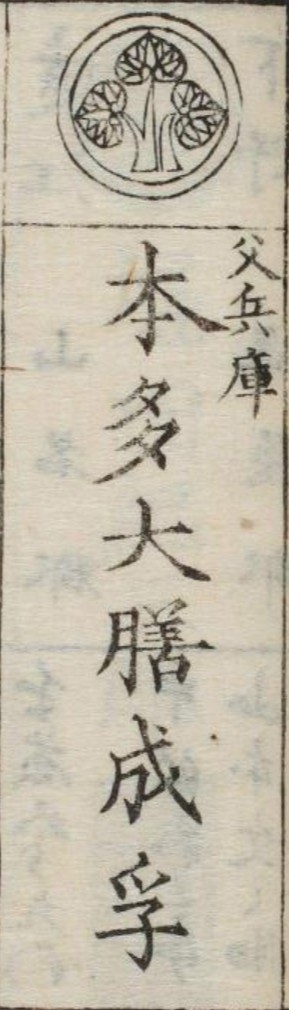 父兵庫
本多大膳成孚